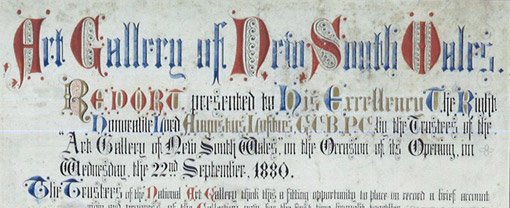 Art Gallery of New South Wales.
REPORT presented by His Excellency The Right
Honorable Lord Augustus Loftus G.C.B. P.C. by the Trustees of the
"Art Gallery of New South Wales, on the Occasion of its Opening, on
Wednesday, the 22nd September, 1880.
The Trustees of the National Art Gallery think this a fitting opportunity to place on record a brief account
and progress of the Collection now for the first time